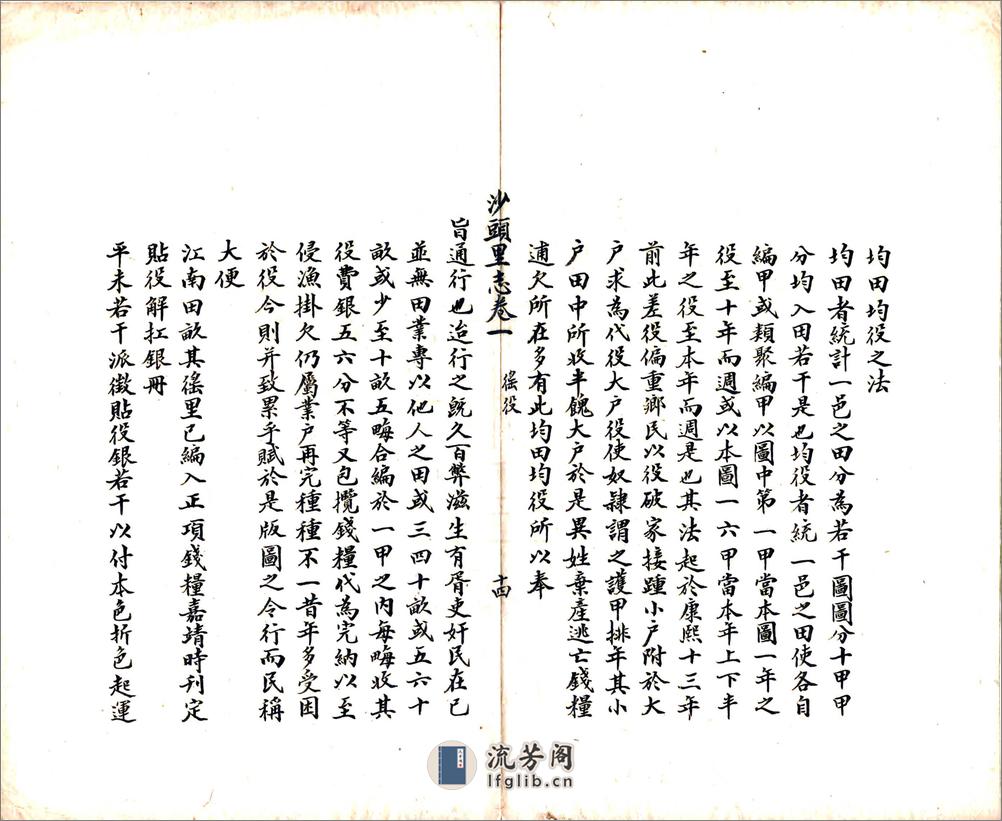 均田均役之法
均田者統計一邑之田分為若干圖圖分十甲甲
分均入田若干是也均役者統一邑之田使各自
編甲或類聚編甲以圖中第一甲當本圖一年之
役至十年而週或以本圖一六甲當本年上下半
年之役至本年而週是也其法起於康熙十三年
前此差役偏重鄉民以役破家接踵小戶附於大
戶求為代役大戶役使奴隸謂之護甲排年其小
戶田中所收半餽大戶於是異姓棄產逃亡錢糧
逋欠所在多有此均田均役所以奉
沙頭里志卷一
徭役
十四
旨通行也迨行之旣久百弊滋生有胥吏奸民在已
並無田業專以他人之田或三四十畝或五六十
畝或少至十畝五畮合編於一甲之內每畮收其
役費銀五六分不等又包攬錢糧代為完納以至
侵漁掛欠仍屬業戶再完種種不一昔年多受困
於役今則并致累乎賦於是版圖之令行而民稱
大便
江南田畝其徭里已編入正項錢糧嘉靖時刊定
貼役解扛銀冊
平未若干派徵貼役銀若干以付本色折色起運
流芳阁
lfglib.cn